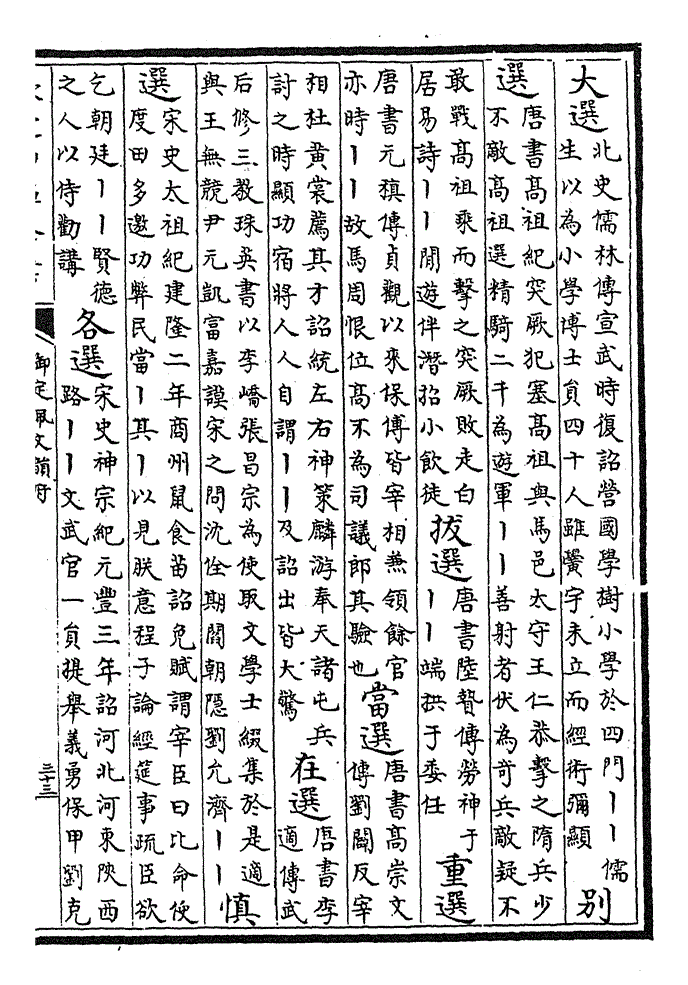 大選
北史儒林傳宣武時復詔營國學樹小學於四門丨丨儒
生以為小學博士員四十人雖黌宇未立而經術彌顯
別
選
唐書高祖紀突厥犯塞高祖與馬邑太守王仁恭擊之隋兵少
不敵高祖選精騎二千為遊軍丨丨善射者伏為奇兵敵疑不
敢戰高祖乘而擊之突厥敗走白
居易詩丨丨閒遊伴潛招小飲徒
拔選
唐書陸贄傳勞神于
丨丨端拱于委任
重選
唐書元稹傳貞觀以來保傅皆宰相兼領餘官
亦時丨丨故馬周恨位高不為司議郎其驗也
當選
唐書高崇文
傳劉闢反宰
相杜黄裳薦其才詔統左右神策麟游奉天諸屯兵
討之時顯功宿將人人自謂丨丨及詔出皆大驚
在選
唐書李
適傳武
后修三教珠英書以李嶠張昌宗為使取文學士綴集於是適
與王無競尹元凱富嘉謨宋之問沈佺期閻朝隱劉允濟丨丨
慎
選
宋史太祖紀建隆二年商州鼠食苗詔免賦謂宰臣曰比命使
度田多邀功弊民當丨其丨以見朕意程子論經筵事疏臣欲
乞朝廷丨丨賢德
之人以侍勸講
各選
宋史神宗紀元豐三年詔河北河東陜西
路丨丨文武官一員提舉義勇保甲劉克
御定佩文韻府
三十三